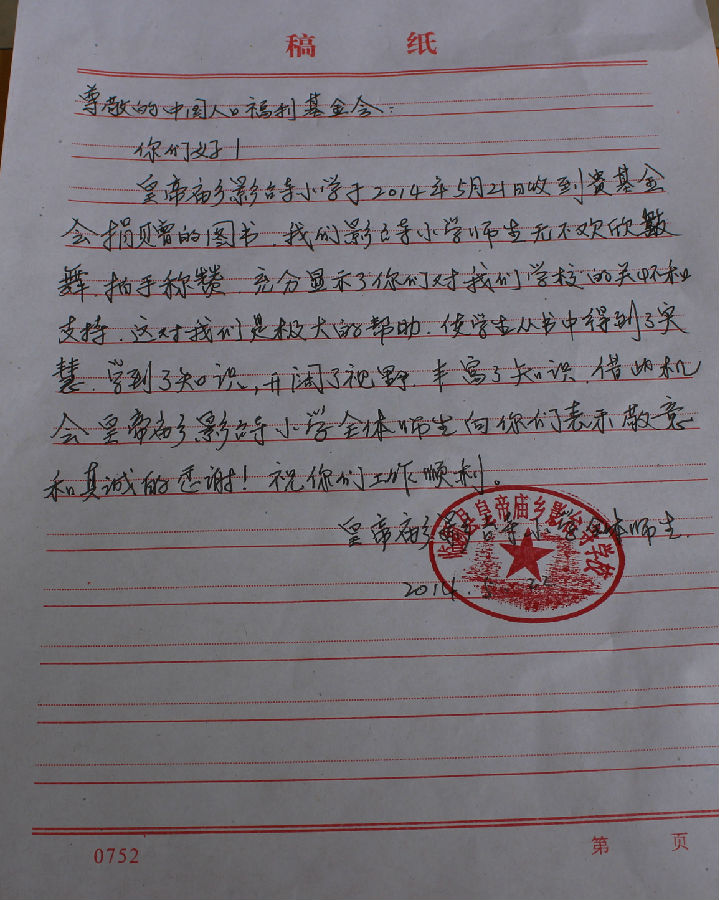 稿 纸
尊敬的中国人口福利基金会:
你们好!
皇帝庙乡影台寺小学于2014年5月21日收到贵基金
会捐赠的图书.我们影台寺小学师生无不欢欣鼓
舞.拍手称赞.充分显示了你们对我们学校的关怀和
支持.这对我们是极大的帮助.使学生从书中得到了实
慧.学到了知识,开阔了视野.丰富了知识.借此机
会皇帝庙乡影台寺小学全体师生向你们表示敬意
和真诚的感谢!祝你们工作顺利。
皇帝庙乡影台寺小学全体师生.
皇帝庙乡影台寺学校
2014.5
0752
第 页